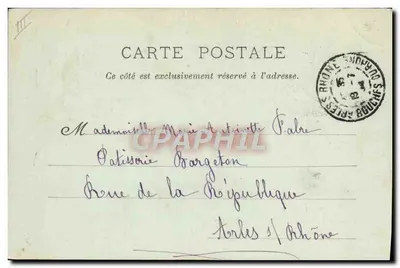 III
CARTE POSTALE
Ce côté est exclusivement réservé à l'adresse.
ARLES S RHONE
BOUCHES DU RHONE
Mademoiselle Marie Antoinette Fabre
Patisserie Bargeton
Rue de la République
Arles s/ Rhône